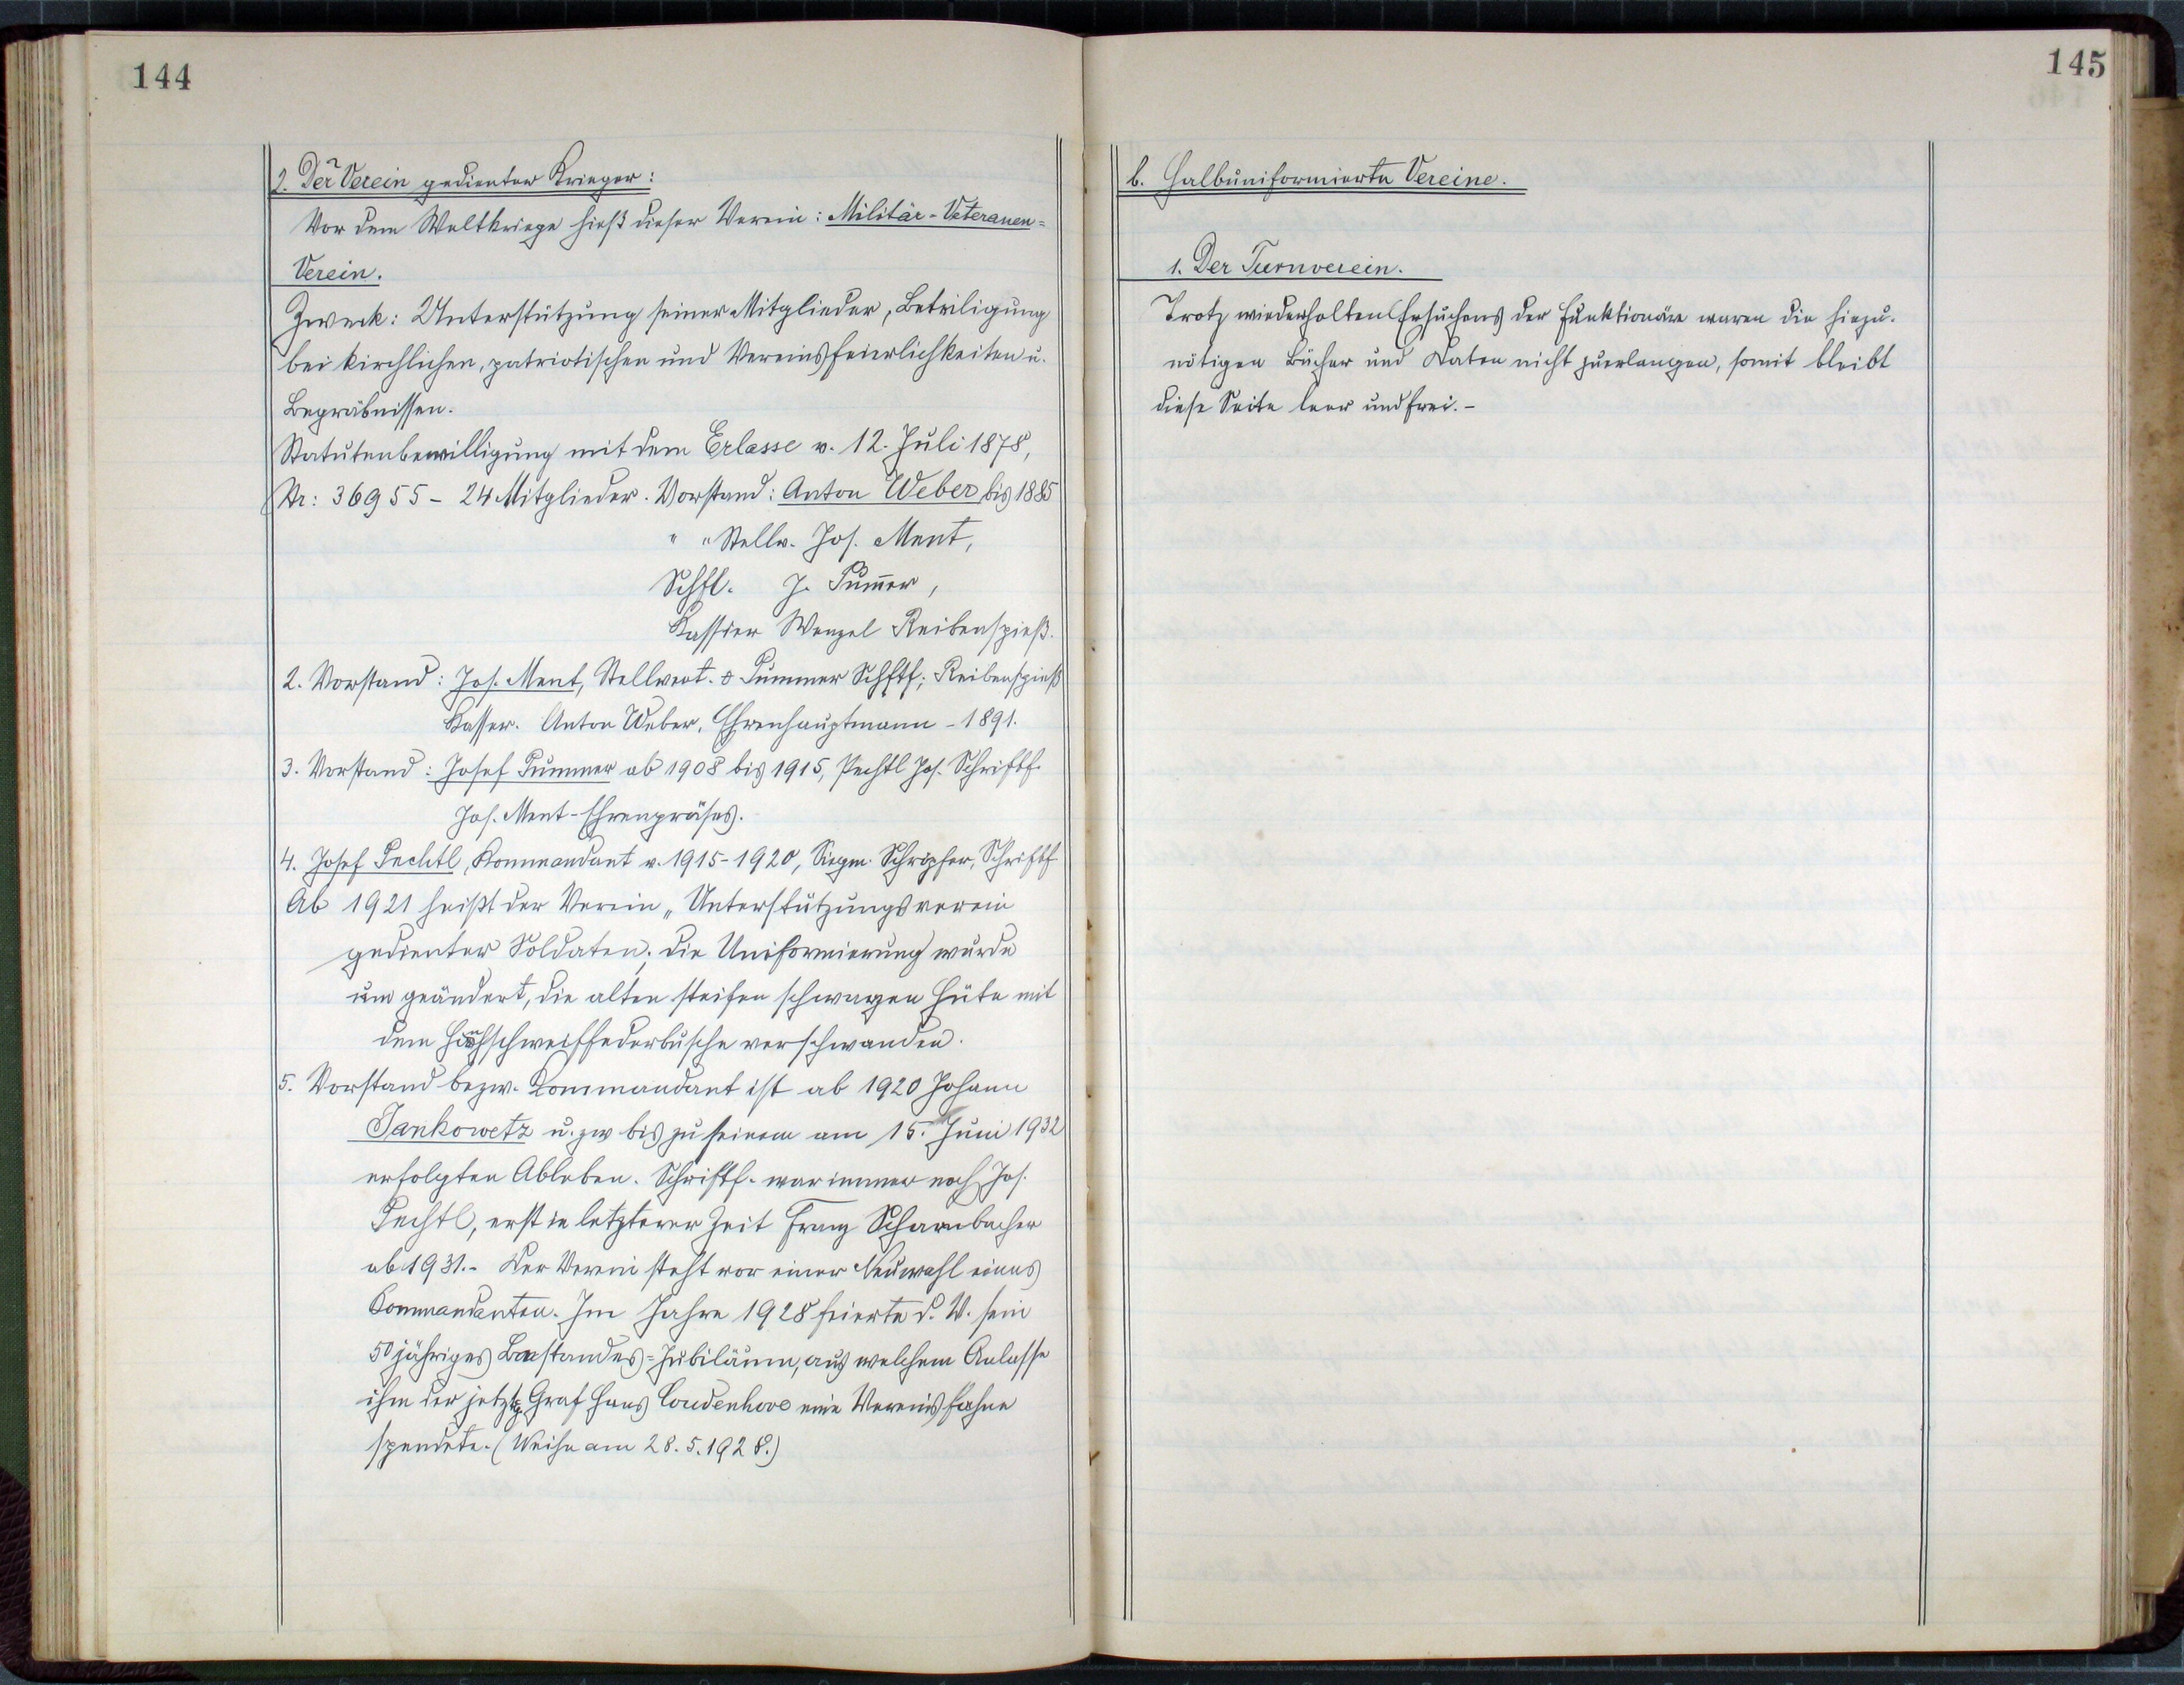 144
2. Der Verein gedienter Krieger:
Vor dem Weltkriege hieß dieser Verein: Militär-Veteranen=
Verein.
Zweck: Unterstützung seiner Mitglieder, Beteiligung
bei kirchlichen, patriotischen und Vereinsfeierlichkeiten u.
Begräbnissen.
Statutenbewilligung mit dem Erlasse v. 12. Juli 1878,
Nr: 36955 - 24 Mitglieder. Vorstand: Anton Weber bis 1885
" " Stellv. Jos. Ment,
Schfl. J. Pum̄er,
Kassier Wenzel Reibenspieß.
2. Vorstand: Jos. Ment, Stellvert. Pummer Schftf; Reibenspieß
Kasser. Anton Weber, Ehrenhauptmann - 1891.
3. Vorstand: Josef Pummer ab 1908 bis 1915, Pechtl Jos. Schriftf.
Jos. Ment-Ehrenpräses.
4. Josef Pechtl, Kommandant v. 1915-1920, Siegm. Schripfer, Schriftf
Ab 1921 heißt der Verein „Unterstützungsverein
gedienter Soldaten; die Uniformierung wurde
um geändert, die alten steifen schwarzen Hüte mit
dem Hahnschweiffederbusche verschwanden.
5. Vorstand bezw. Kommandant ist ab 1920 Johann
Jankowetz u. zw bis zu seinem am 15. Juni 1932
erfolgten Ableben. Schriftf. war immer noch Jos.
Pechtl, erst in letzterer Zeit Franz Scharnbacher
ab 1931.- Der Verein steht vor einer Neuwahl eines
Kommandanten. Im Jahre 1928 feierte d. V. sein
50 jähriges Bestandes=Jubiläum, aus welchem Anlasse
ihm der jetztg. Graf Hans Coudenhove eine Vereinsfahne
spendete. (Weihe am 28.5.1928.)
145
b. Halbuniformierte Vereine.
1. Der Turnverein.
Trotz wiederholten Ersuchens der Funktionäre waren die hiezu.
nötigen Bücher und Daten nicht zuerlangen, somit bleibt
diese Seite leer und frei.-